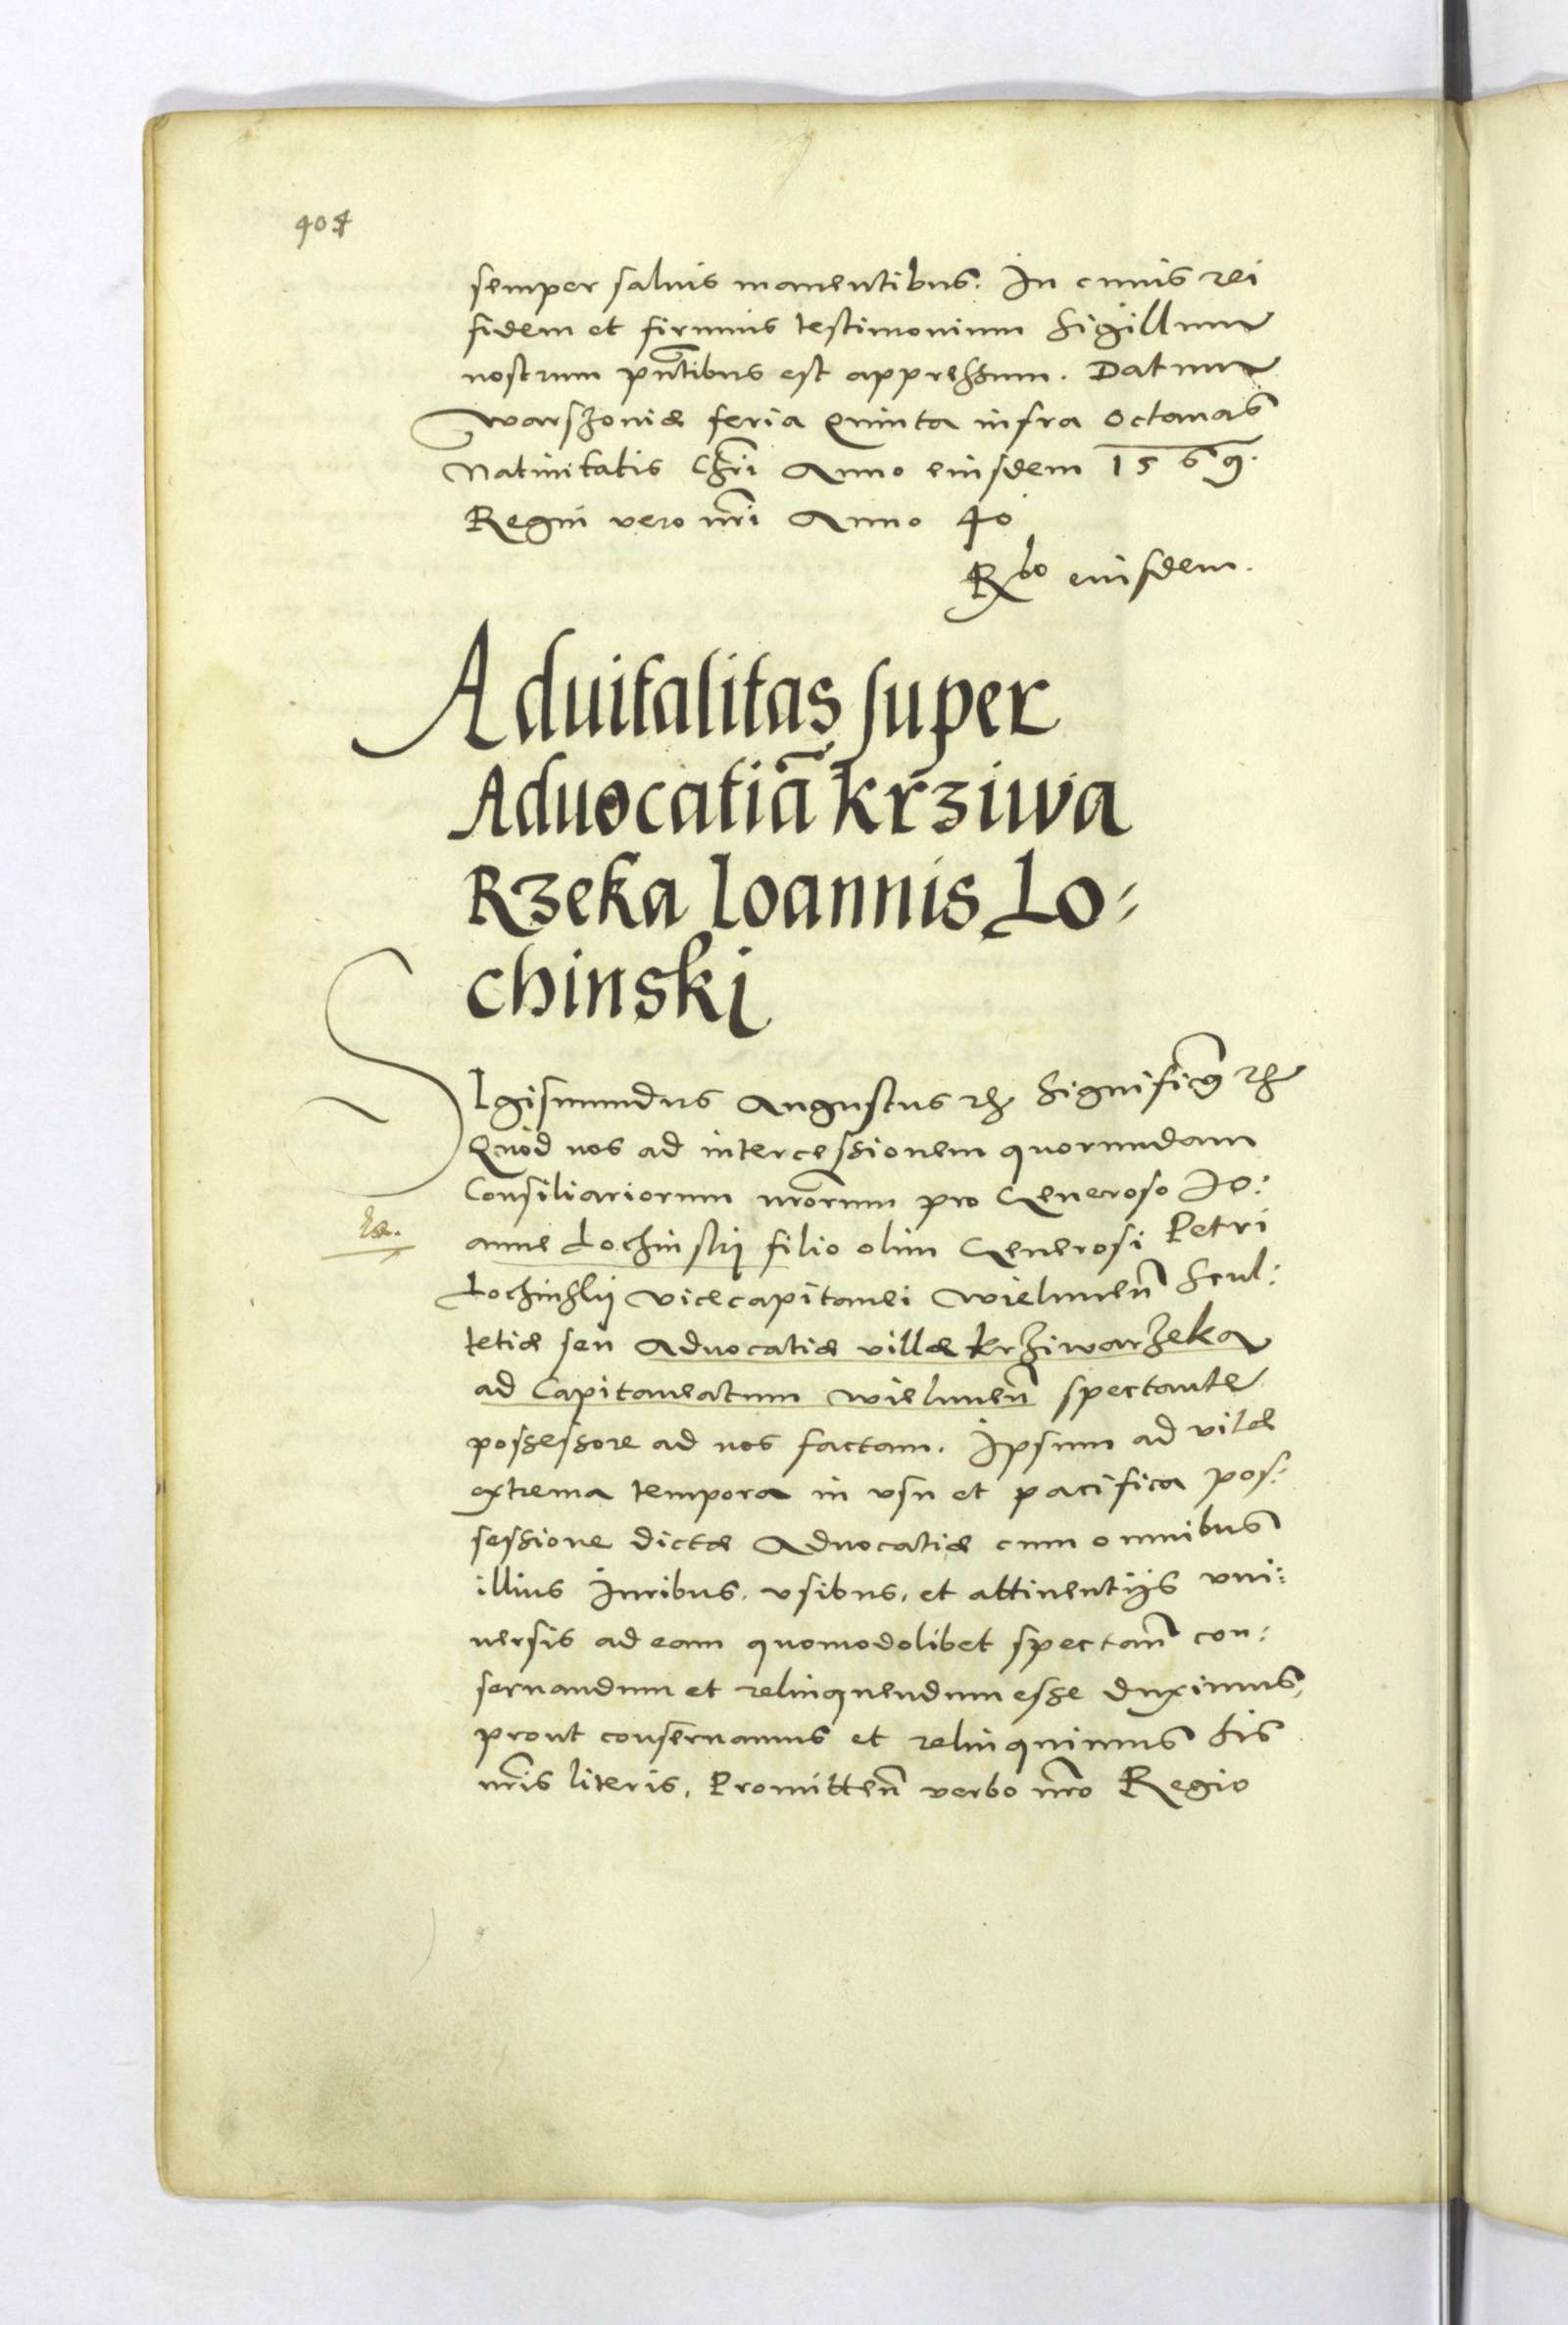 404
semper saluis manentibus. In cuius rei
fidem et firmius testimonium Sigillum
nostrum pñtibus est appressum. Datum
Warszouiæ feria Quinta infra Octauas
Natiuitatis Chri Anno eiusdem 1569.
Regni vero nri Anno 40
Rlo eiusdem.
Aduitalitas super
Aduocatiā krziwa
Rzeka Ioannis Lo=
chinskj
SIgismundus Augustus etc Significamus etc
Quod nos ad intercessionem quorundam
Consiliariorum nrorum pro Generoso Io:
anne Lochinskij filio olim Generosi Petri
Lochinskij Vicecapitanei Wielunen̄ Scul:
tetiæ seu Aduocatiæ villæ krziwarzeka
ad Capitaneatum Wielunen̄ spectante
possessore ad nos factam. Ipsum ad vitæ
extrema tempora in vsu et pacifica pos:
sessione dictæ Aduocatiæ cum omnibus
illius Iuribus, vsibus, et attinentijs vni:
uersis ad eam quomodolibet spectan̄ con:
seruandum et relinquendum esse duximus,
prout conseruamus et relinquimus his
nris literis, Promitten̄ verbo nro Regio